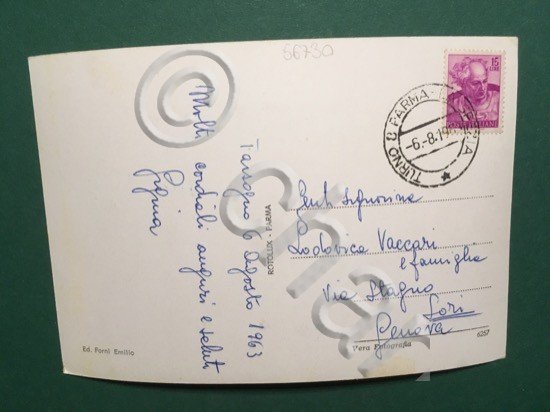 56730
Molti cordiali auguri e saluti
Tarsogno 6 Agosto 1963
ROTOLUX - PARMA
Ed. Forni Emilio
15
LIRE
POSTE ITALIANE
TURNO 8 PARMA
-6.-8.19
Gent. Signorina
Lodovica Vaccari
e famiglia
Via Stagno
Sori
Genova
Vera Fotografia
6257
©